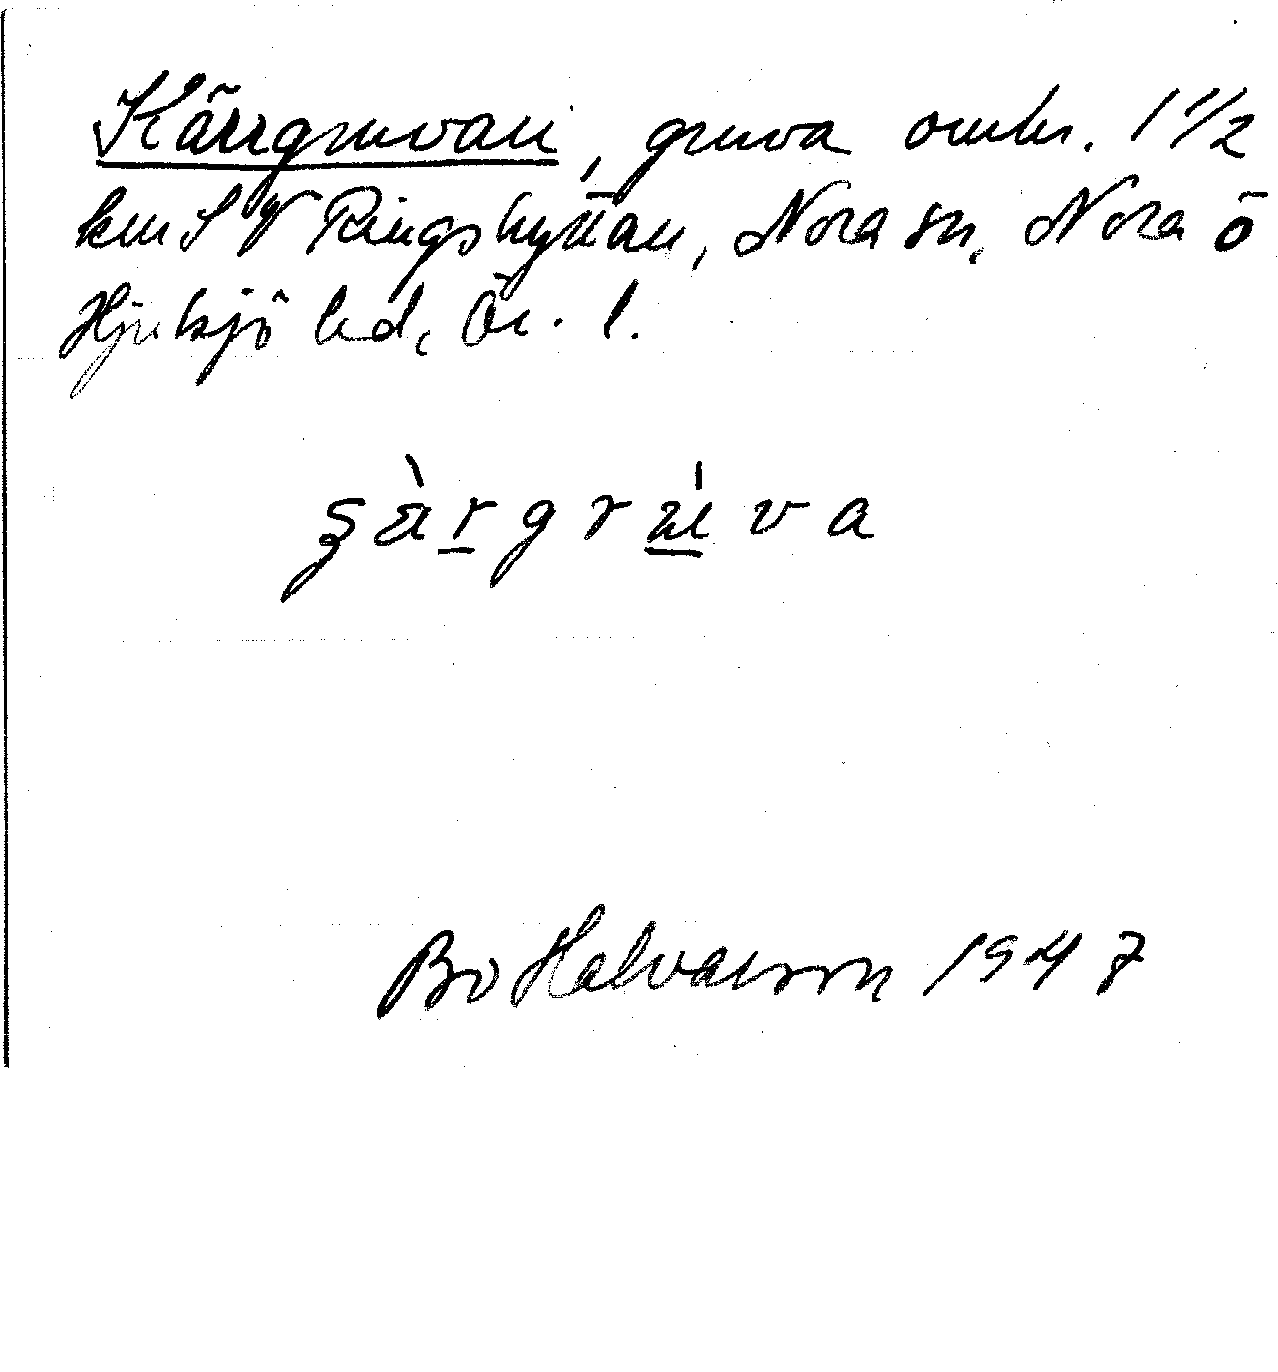 Kärrgruvan, gruva omkr. 1 1/2
km SV Ringshyttan, Nora sn, Nora o
Hjulsjö hd, Ör. l.
Bo Halvarson 1947